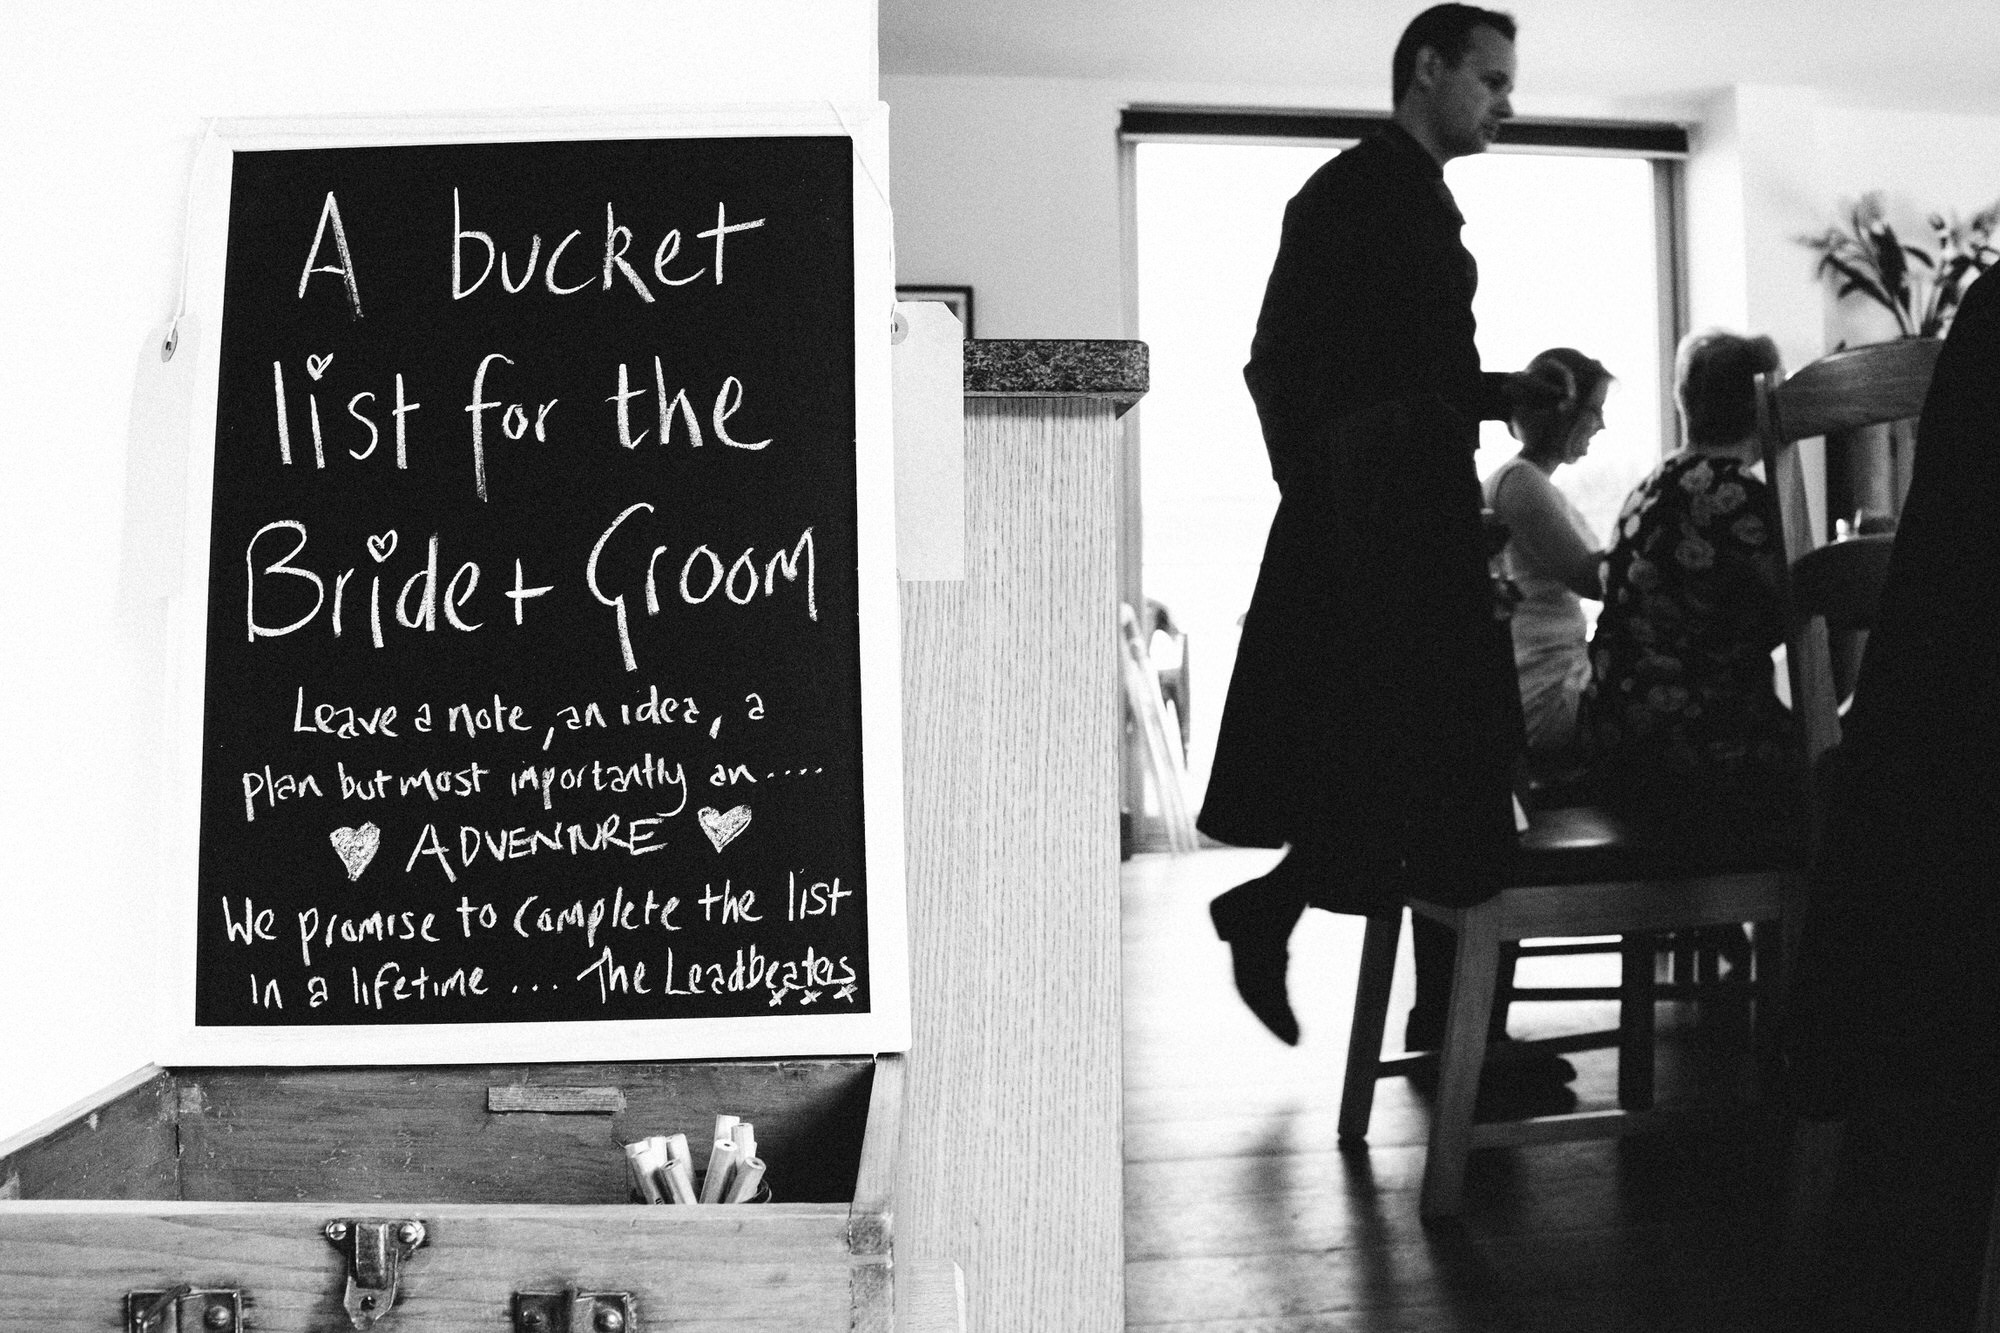 A bucket
list for the
Bride + Groom
Leave a note, an idea, a
plan but most importantly an....
♥ ADVENTURE ♥
We promise to complete the list
in a lifetime ... The Leadbeaters
x x x